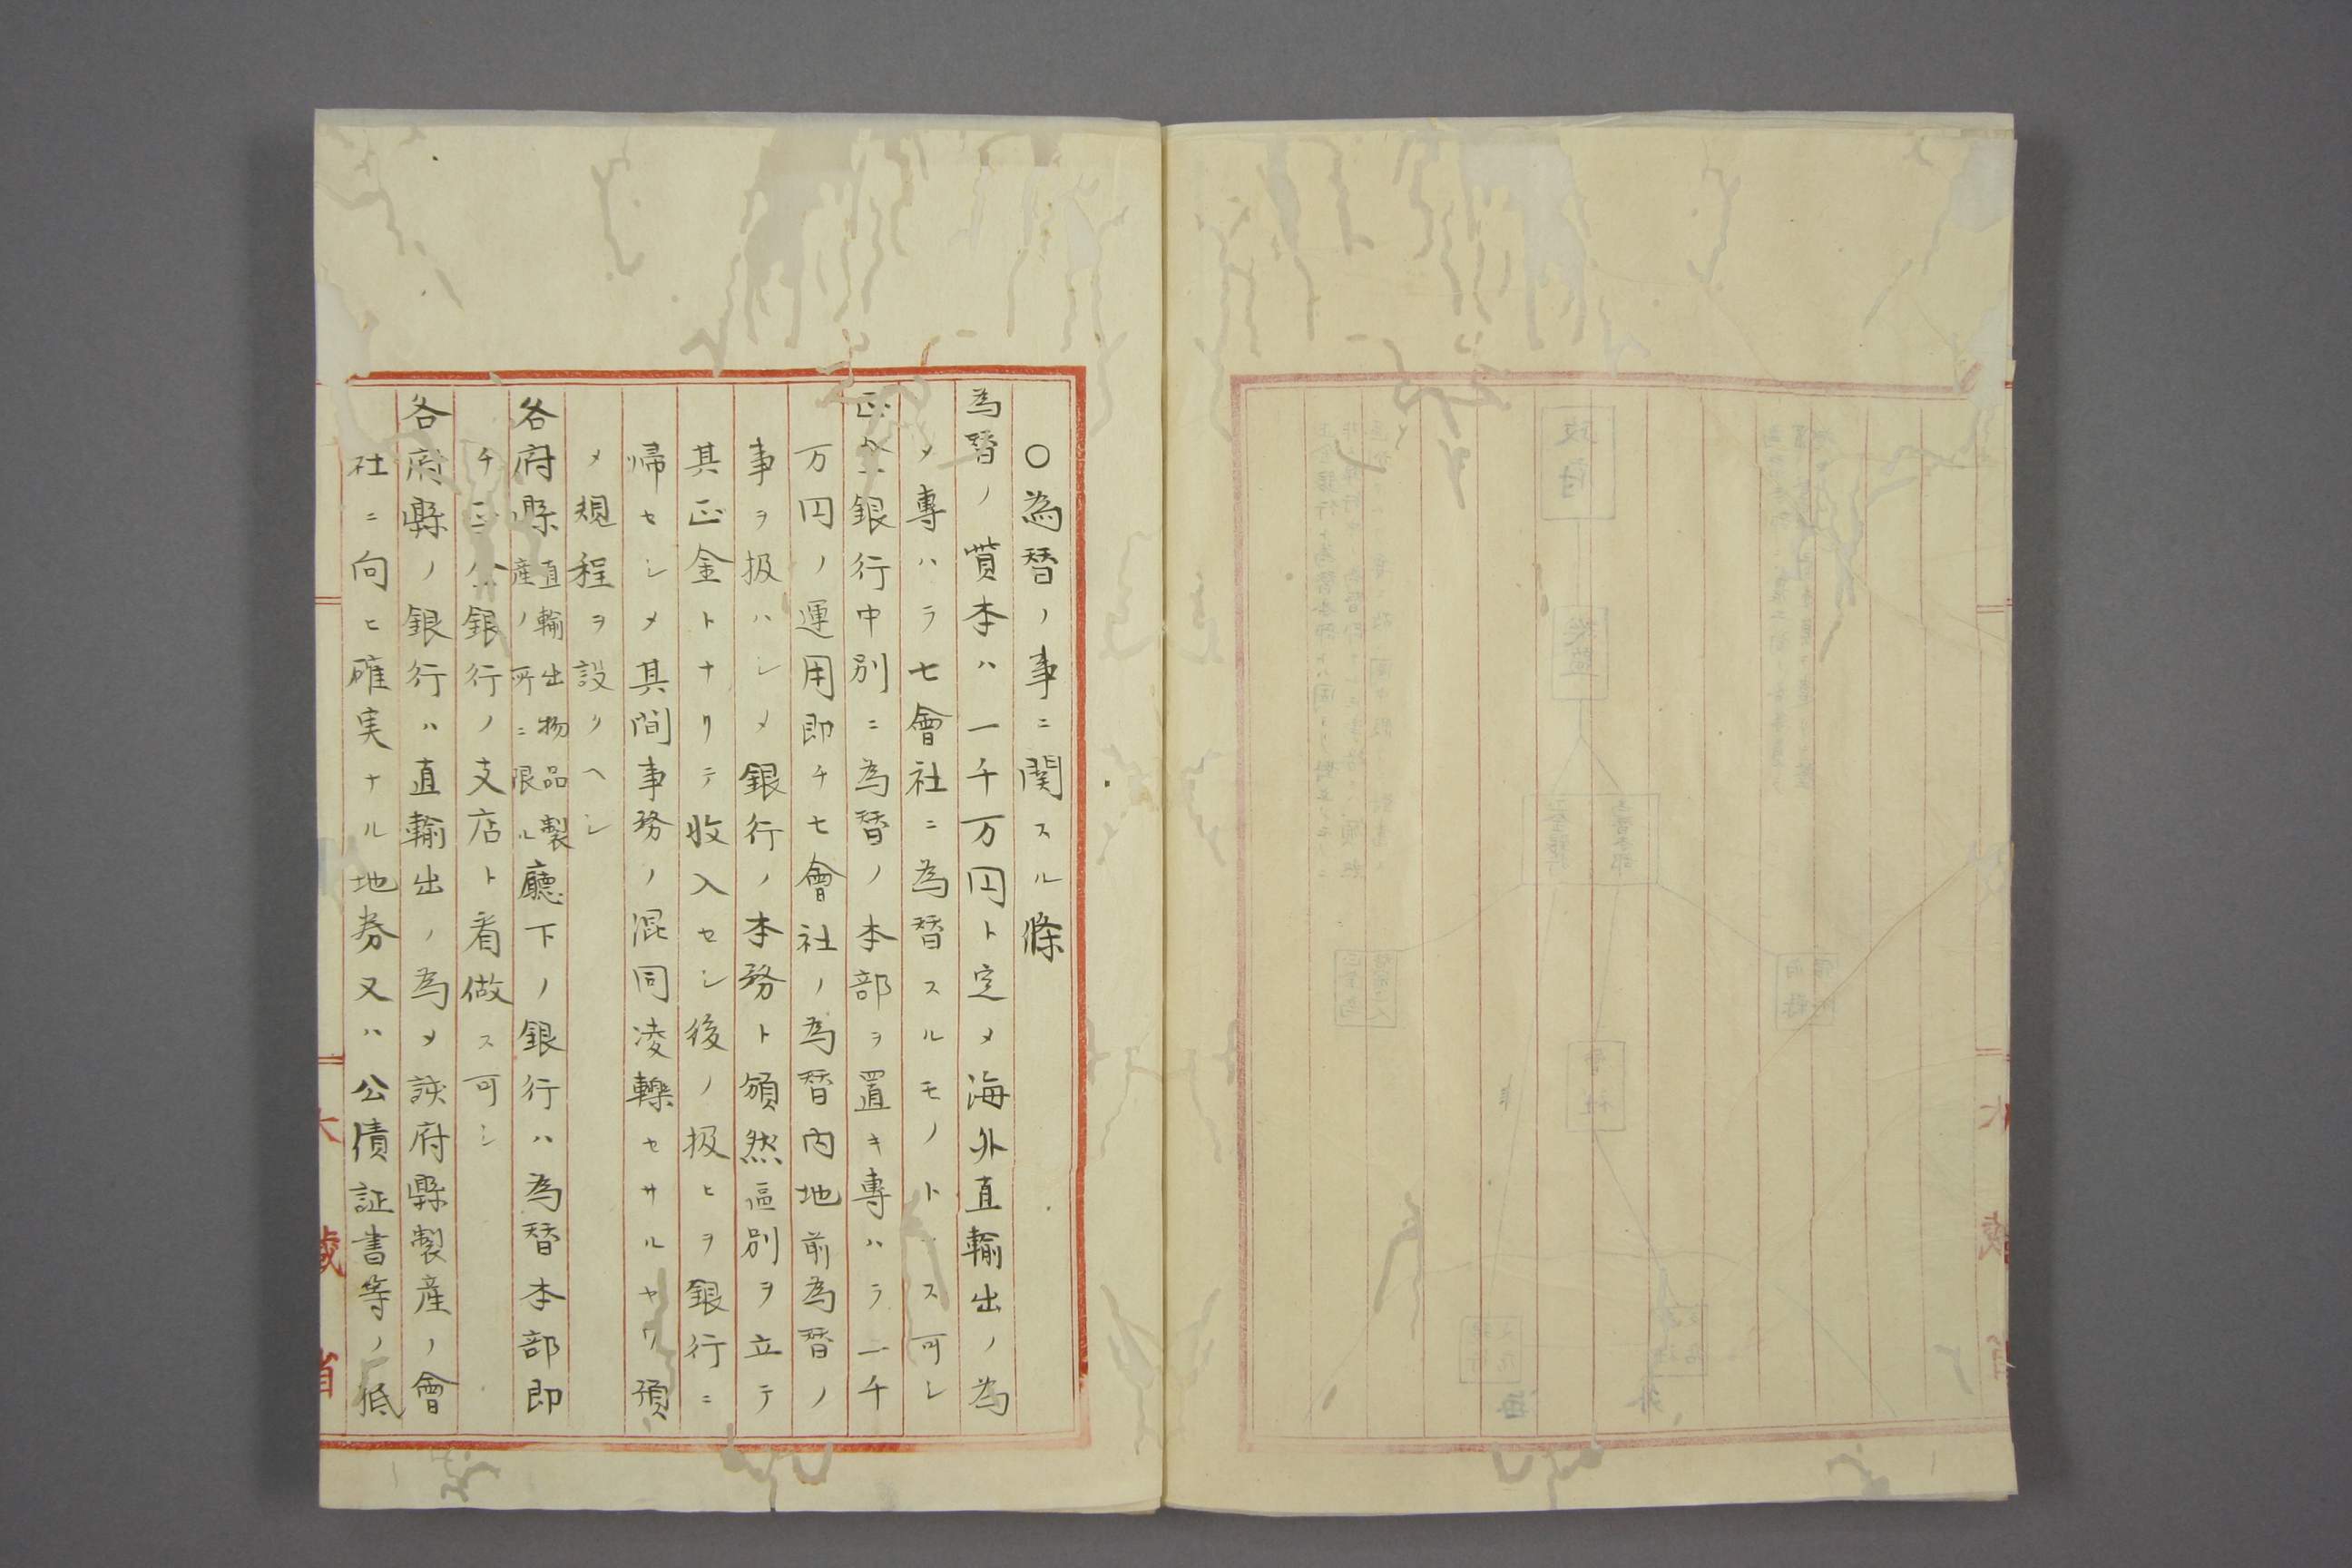 〇為替ノ事ニ関スル條
為替ノ貲本ハ一千万円ト定メ海外直輸出ノ為
メ專ハラ七會社ニ為替スルモノトス可シ
正金銀行中別ニ為替ノ本部ヲ置キ專ハラ一千
万円ノ運用即チ七會社ノ為替内地前為替ノ
事ヲ扱ハシメ銀行ノ本務ト頒然區別ヲ立テ
其正金トナリテ收入セシ後ノ扱ヒヲ銀行ニ
帰セシメ其間事務ノ混同凌轢セサルヤウ預
メ規程ヲ設クヘシ
各府縣直輸出物品製産ノ所ニ限ル廳下ノ銀行ハ為替本部即
チ正金銀行ノ支店ト看做ス可シ
各府縣ノ銀行ハ直輸出ノ為メ該府縣製産ノ會
社ニ向ヒ確実ナル地券又ハ公債証書等ノ低
大藏省